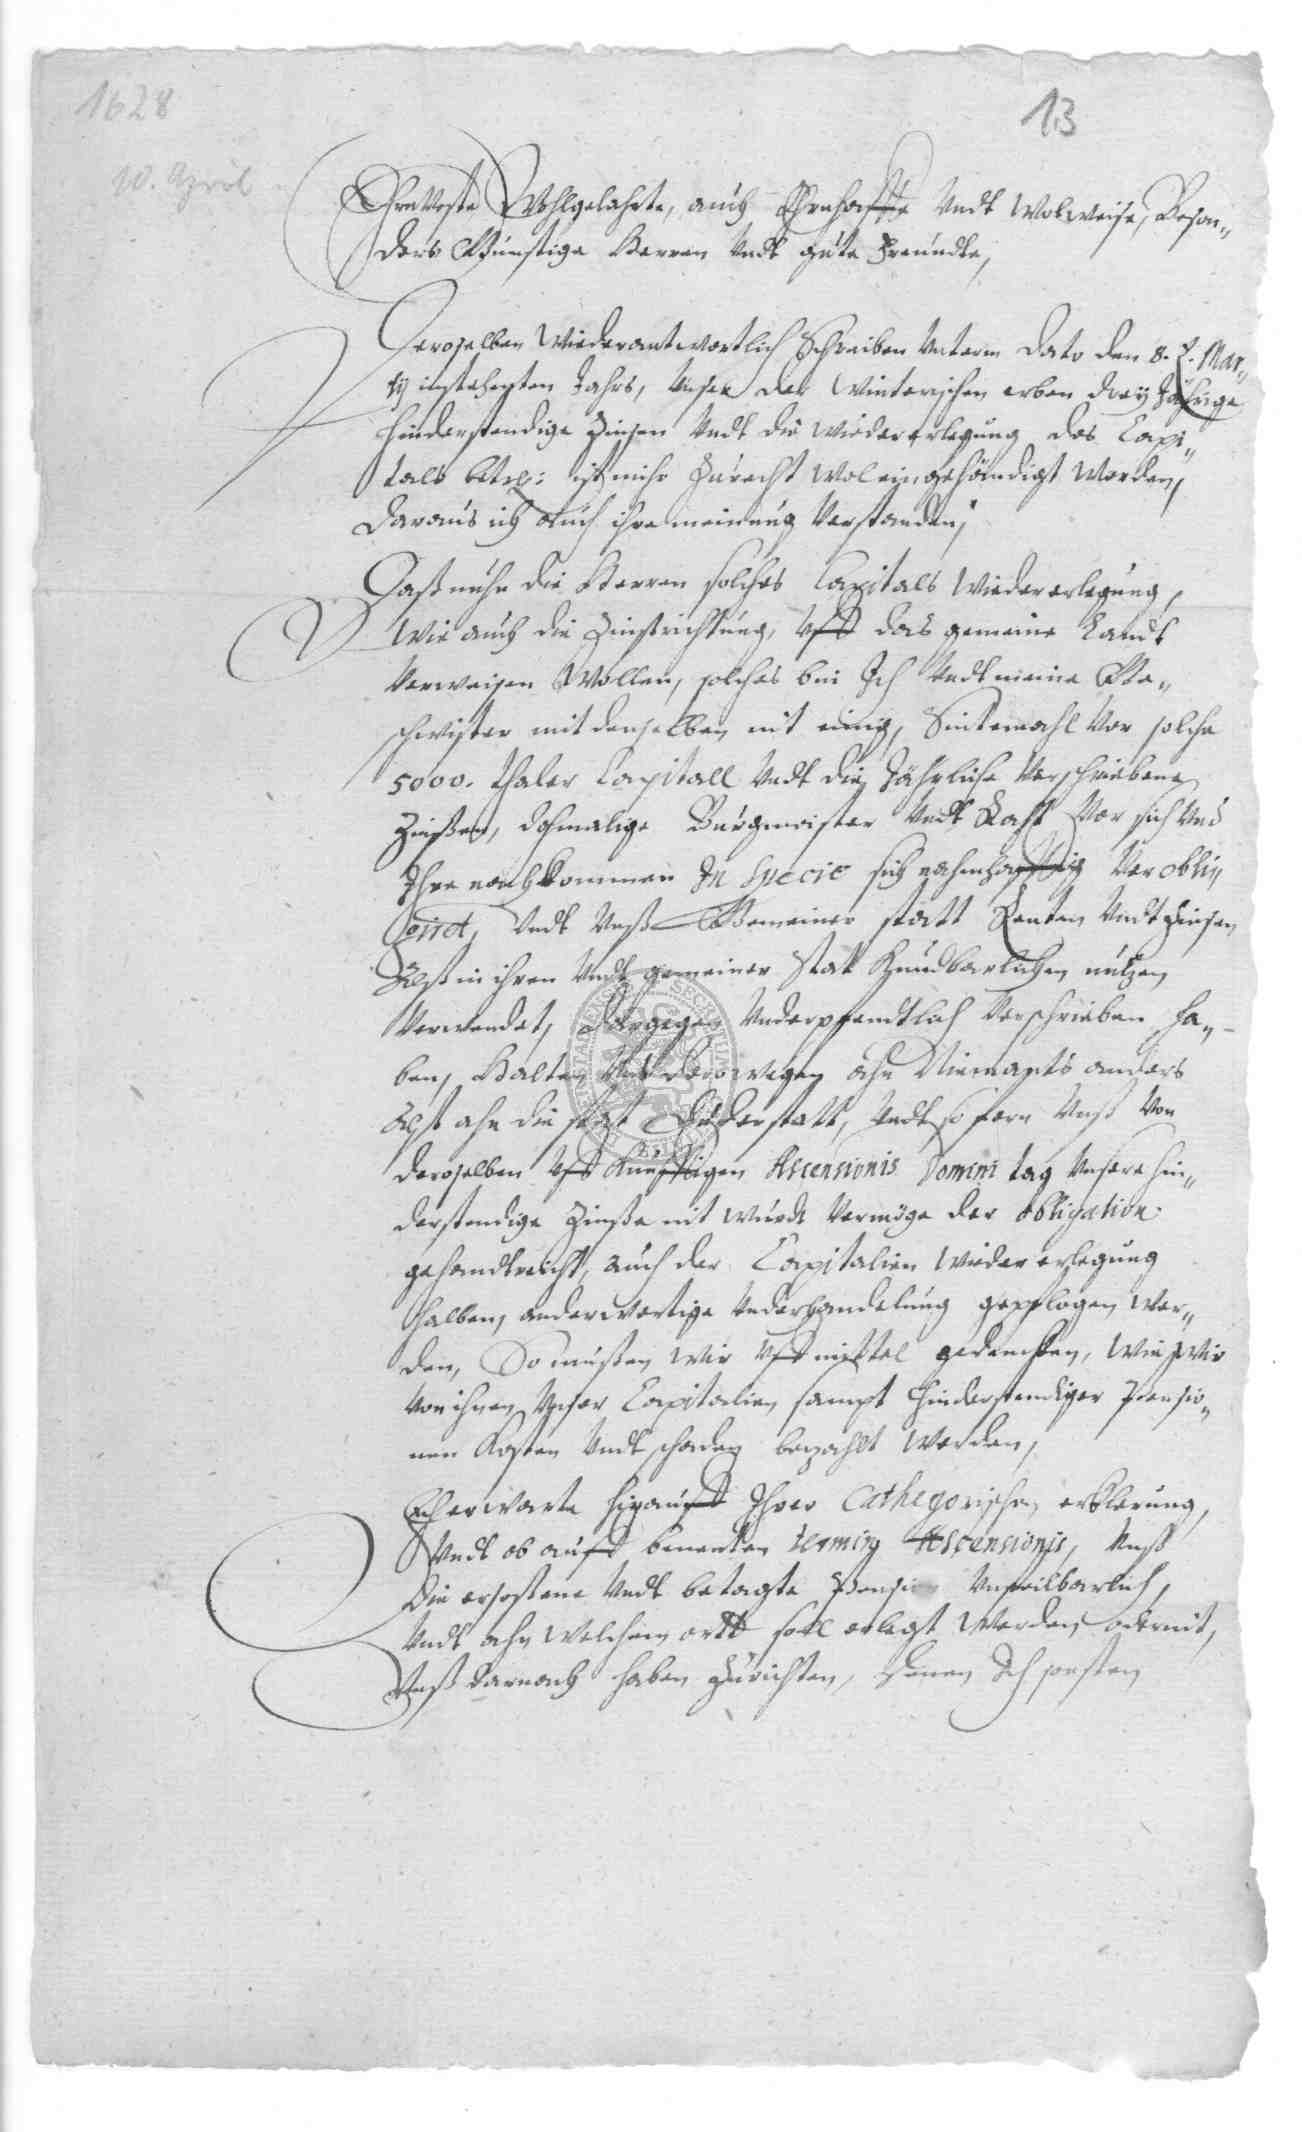 1628
13
10. April
Ehrnveste Wohlgelahrte, auch Ehrnhaffte Undt Wolweise, Beson„
ders Günstige Herren Undt gute Freundte,
Deroselben Wiederantwortlich Schreiben Unterm dato den 8. Mar„
tij instehenten Jahrs, Unser der Winterischen erben drey Jährige
hinderstendige Zinsen Undt die Wiedererlegung des Capi„
tals betr: ist mihr Zurecht Wol eingehändigt Worden,
daraus ich auch ihre meinung Verstanden,
Daß nuhn die Herren solches Capitals Wiedererlegung,
Wie auch die Zinstrichtung, Uff das gemeine Landt
Verweisen Wollen, solches bin Ich Undt meine Ge„
schwister mit denselben nit einig, Sintemahl Vor solche
5000. thaler Capitall Undt die Jährliche Verschriebene
Zinßen, dohmalige Burgmeister Undt Raht Vor sich Und
Ihre nachkommen In specie sich nahmhafftig Verobli„
girt, Undt Unß Gemeiner statt Renten Undt Zinsen
Alß in ihren Undt gemeiner Stat Kundbarlichen nutzen
Verwendet, dargegen Underpfandtlich Verschrieben ha„
ben, Halten Unß derowegen ahn Niemants anders
Alß ahn die stat Duderstatt, Undt so fern Unß Von
deroselben Uff künfftigen Ascensionis Domini tag Unsere hin„
derstendige Zinße nit würdt Vermöge der obligation
gehandtreicht, auch der Capitalien Wiedererlegung
halben, anderwertige Underhandelung gepflogen Wer„
den, So müßen Wir Uff mittel gedencken, Wie Wir
Von ihnen Unser Capitalien sampt hinderstendiger Pensio„
nen Kosten Undt schaden bezahlt Werden,
Ich erwarte hirauff Ihrer Cathegorischen erklerung,
Undt ob auff benenten termin Ascensionis, Unß
die ersessene Undt betagte Pension Unfeilbarlich,
Undt ahn Welchem ortt soll erlegt Werden oder nit,
Unß darnach haben Zurichten, denen Ich sonsten